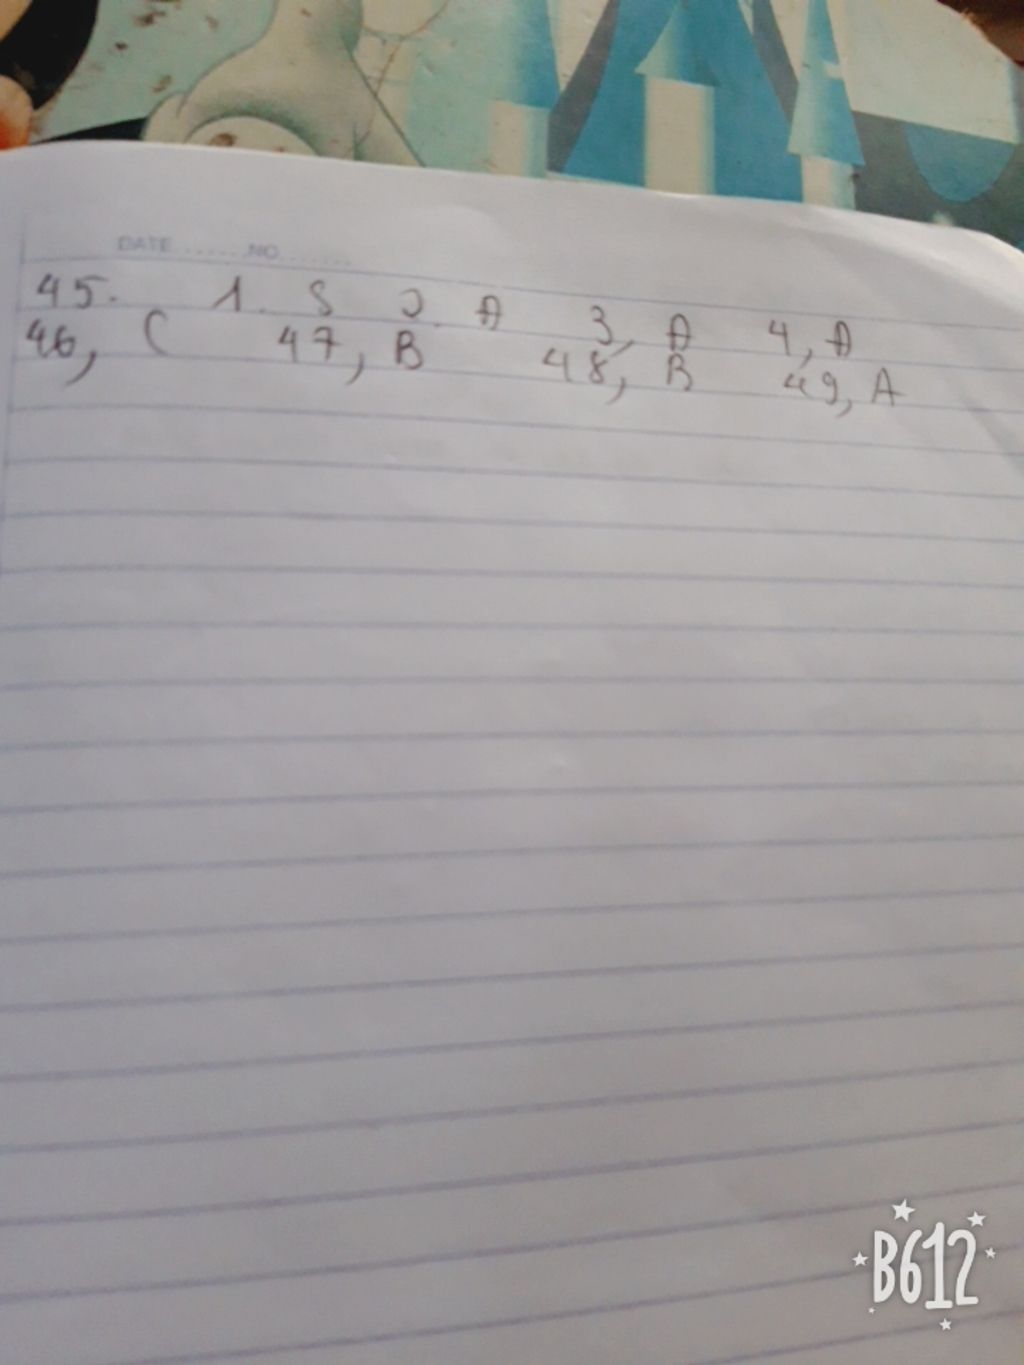 DATE.......NO.......
45. 1. S 2. A 3, A 4, A
46, C 47, B 48, B 49, A
B612